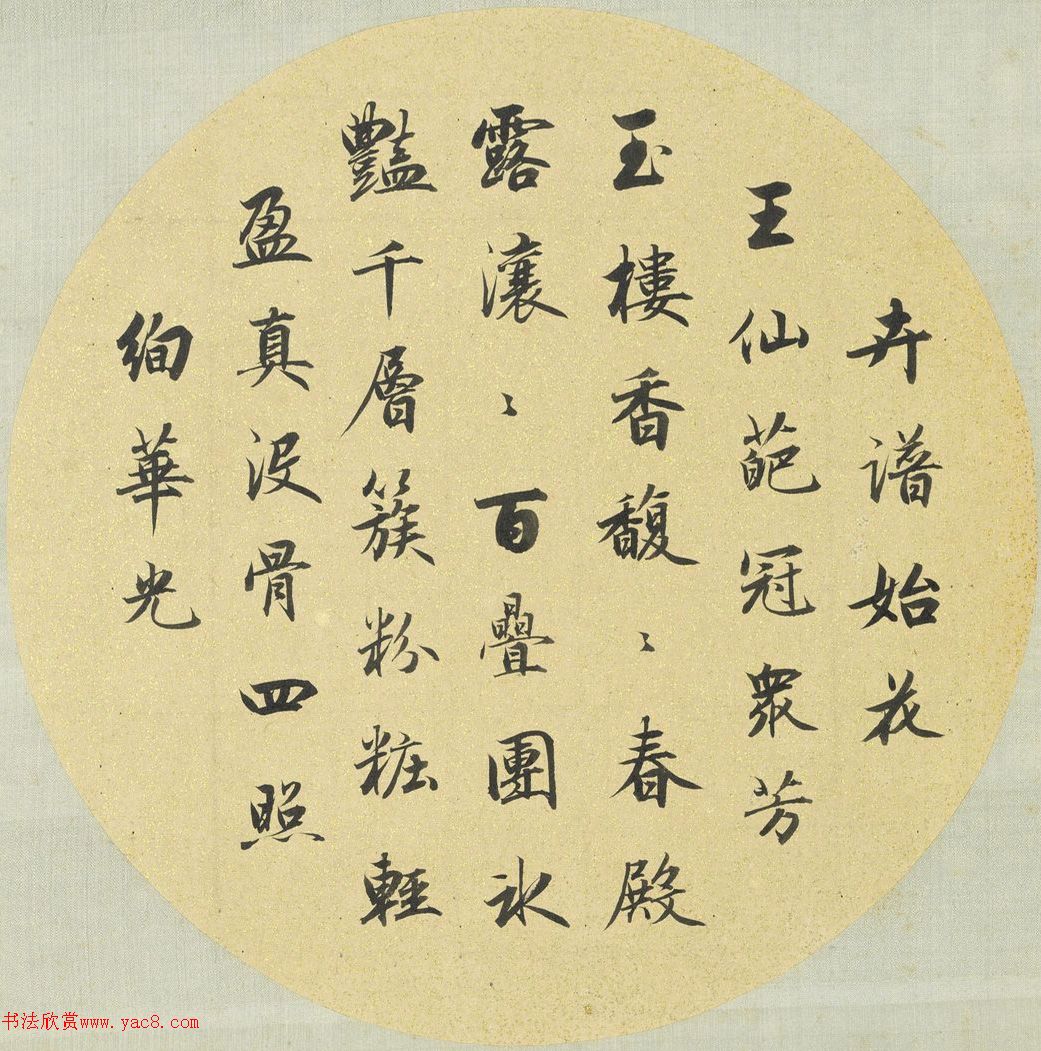 卉譜始花
王仙葩冠衆芳
玉樓香馥〻春殿
露瀼〻百疊團冰
豔千層簇粉粧輕
盈真没骨四照
絢華光
书法欣赏www.yac8.com